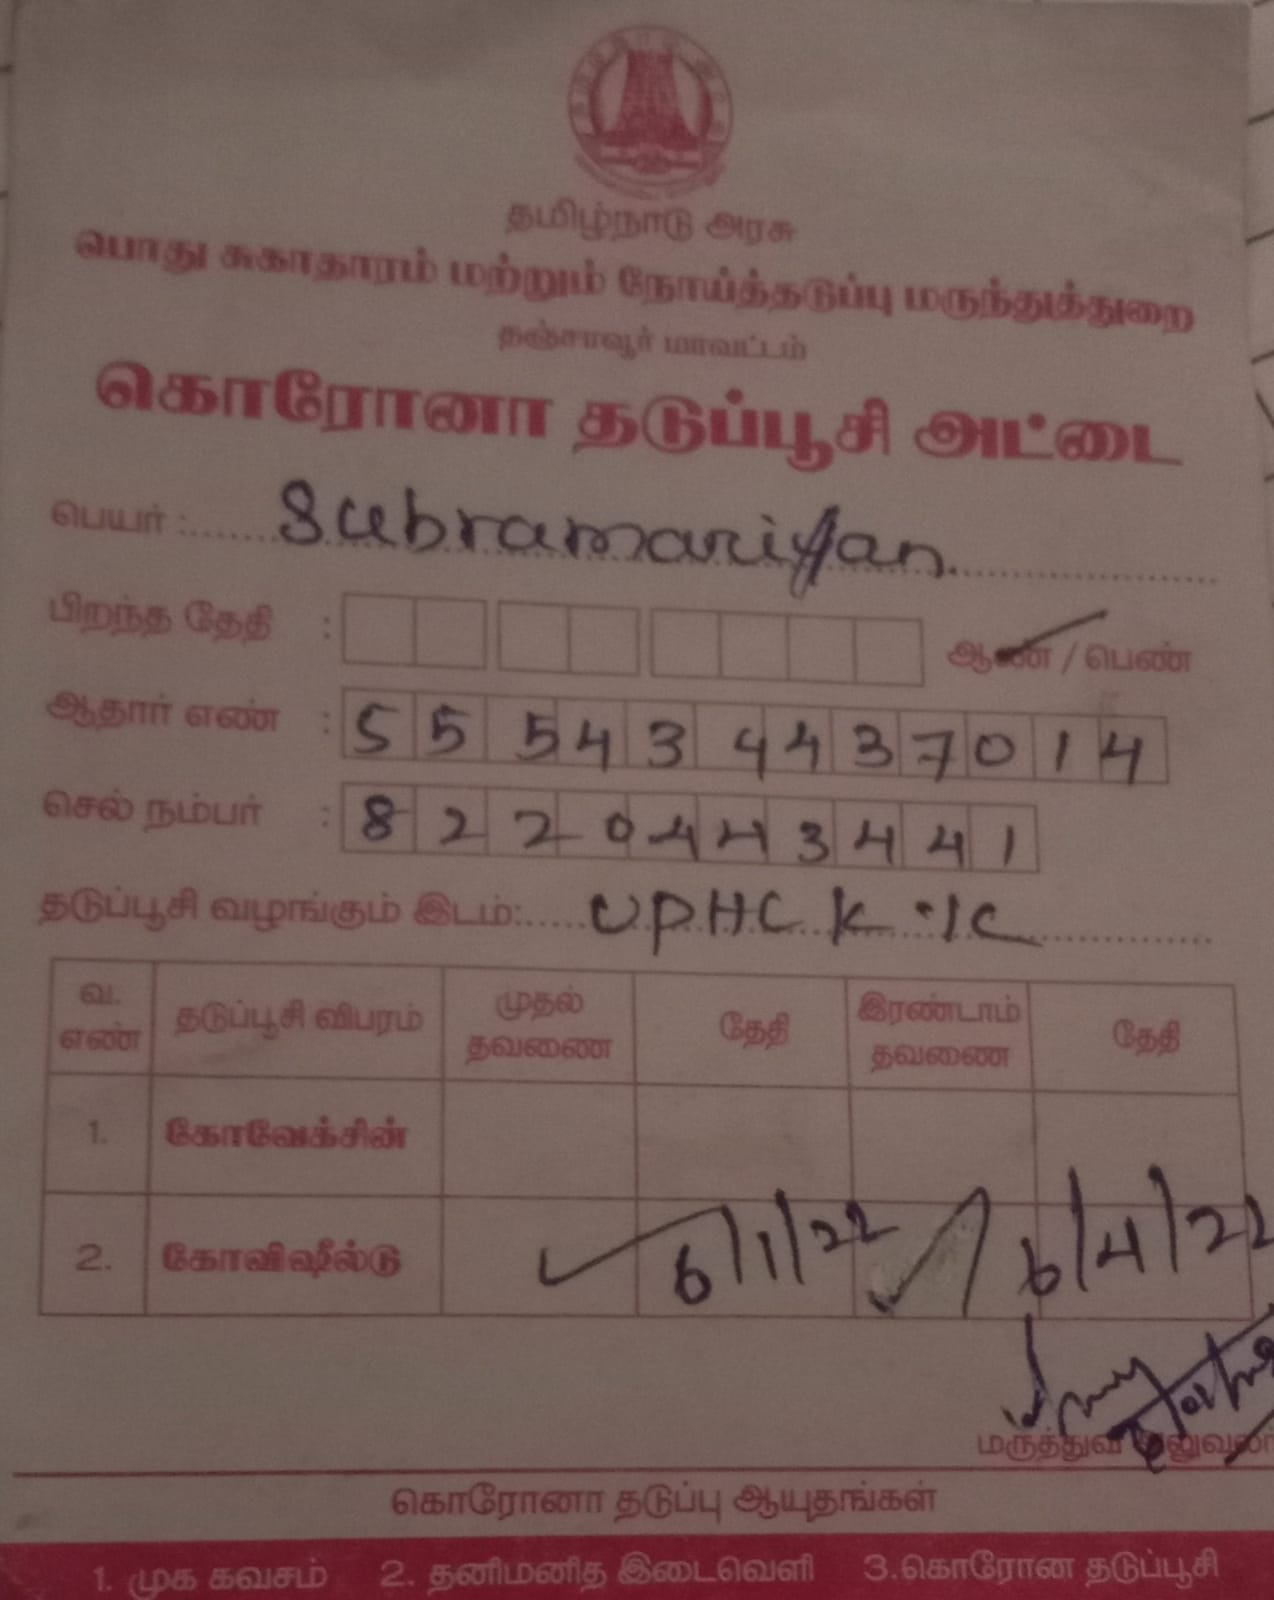 தமிழ்நாடு அரசு
பொது சுகாதாரம் மற்றும் நோய்த்தடுப்பு மருந்துத்துறை
தஞ்சாவூர் மாவட்டம்
கொரோனா தடுப்பூசி அட்டை
பெயர் : Subramaniyan
பிறந்த தேதி : ஆண் / பெண்
ஆதார் எண் : 555434437014
செல் நம்பர் : 8220443441
தடுப்பூசி வழங்கும் இடம்: UPHC K
வ. எண் தடுப்பூசி விபரம் முதல் தவணை தேதி இரண்டாம் தவணை தேதி
1. கோவேக்சின்
2. கோவிஷீல்டு ✓ 6/1/22 ✓ 6/4/22
மருத்துவ அலுவலர்
கொரோனா தடுப்பு ஆயுதங்கள்
1. முக கவசம் 2. தனிமனித இடைவெளி 3.கொரோன தடுப்பூசி